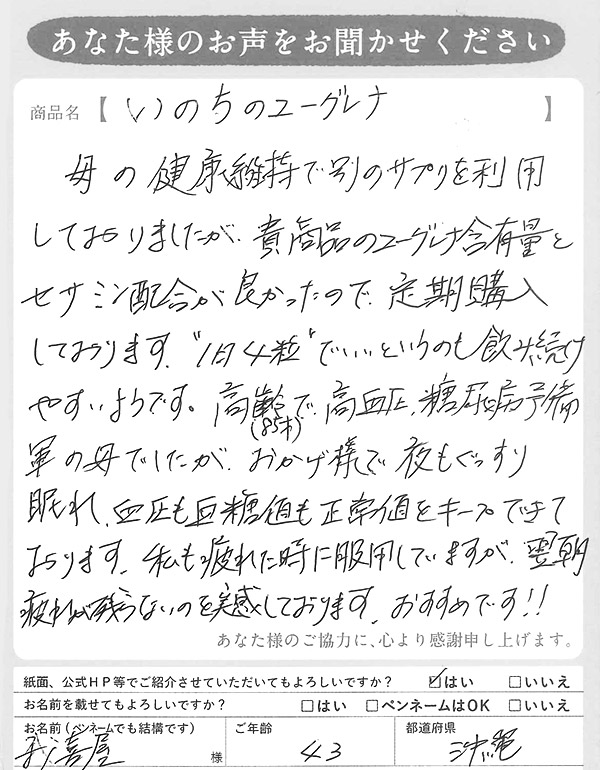 あなた様のお声をお聞かせください
商品名【いのちのユーグレナ】
母の健康維持で別のサプリを利用
しておりましたが、貴商品のユーグレナ含有量と
セサミン配合が良かったので、定期購入
しております。"1日4粒"でいいというのも飲み続け
やすいようです。高齢(85才)で、高血圧、糖尿病予備
軍の母でしたが、おかげ様で夜もぐっすり
眠れ、血圧も血糖値も正常値をキープできて
おります。私も疲れた時に服用していますが、翌朝
疲れが残らないのを実感しております。おすすめです!!
あなた様のご協力に、心より感謝申し上げます。
紙面、公式HP等でご紹介させていただいてもよろしいですか? ☑はい □いいえ
お名前を載せてもよろしいですか? □はい □ペンネームはOK □いいえ
お名前(ペンネームでも結構です) ご年齢 都道府県
喜屋 様 43 沖縄